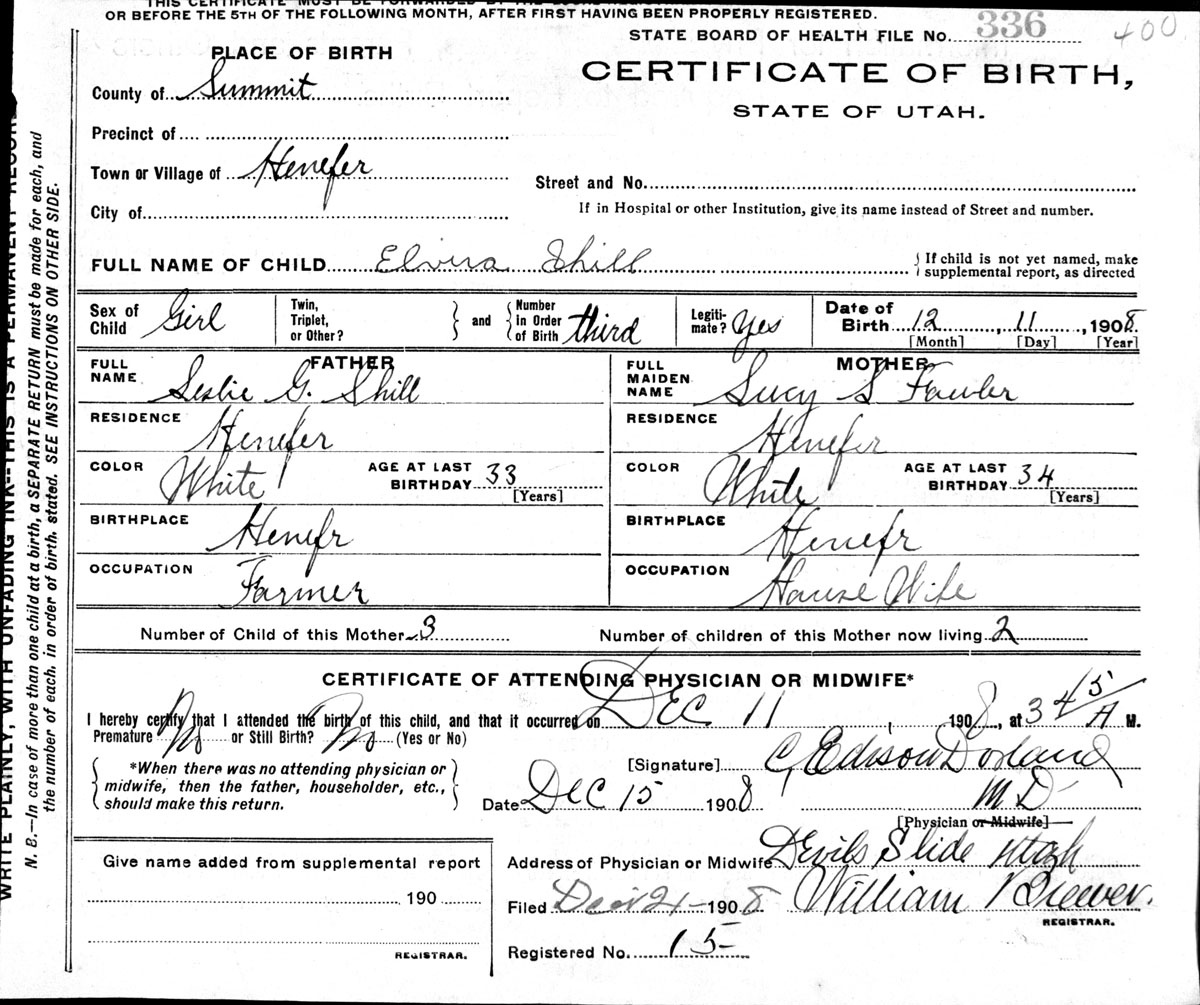 THIS CERTIFICATE MUST BE FORWARDED BY THE LOCAL REGISTRAR
OR BEFORE THE 5TH OF THE FOLLOWING MONTH, AFTER FIRST HAVING BEEN PROPERLY REGISTERED.
STATE BOARD OF HEALTH FILE No. 336 400
PLACE OF BIRTH
CERTIFICATE OF BIRTH,
STATE OF UTAH.
County of Summit
Precinct of
Town or Village of Henefer
Street and No.
City of
If in Hospital or other Institution, give its name instead of Street and number.
FULL NAME OF CHILD Elvira Shill
{ If child is not yet named, make
supplemental report, as directed
Sex of Child Girl
Twin, Triplet, or Other?
and
Number in Order of Birth third
Legiti-mate? Yes
Date of Birth 12, 11, 1908
[Month] [Day] [Year]
FATHER
FULL NAME Leslie G. Shill
RESIDENCE Henefer
COLOR White
AGE AT LAST BIRTHDAY 33
[Years]
BIRTHPLACE Henefr
OCCUPATION Farmer
MOTHER
FULL MAIDEN NAME Lucy S Fowler
RESIDENCE Henefer
COLOR White
AGE AT LAST BIRTHDAY 34
[Years]
BIRTHPLACE Henefr
OCCUPATION House Wife
Number of Child of this Mother 3
Number of children of this Mother now living 2
CERTIFICATE OF ATTENDING PHYSICIAN OR MIDWIFE*
I hereby certify that I attended the birth of this child, and that it occurred on Dec 11, 1908, at 3 45/ A M.
Premature No or Still Birth? No (Yes or No)
*When there was no attending physician or
midwife, then the father, householder, etc.,
should make this return.
[Signature] C Edison Dorland
Date Dec 15 1908
M D
[Physician or Midwife]
Address of Physician or Midwife Devils Slide Utah
Give name added from supplemental report
190
REGISTRAR.
Filed Dec 21 - 1908 William Brewer.
REGISTRAR.
Registered No. 15
WRITE PLAINLY, WITH UNFADING INK--THIS IS A PERMANENT RECORD
N. B.—In case of more than one child at a birth, a SEPARATE RETURN must be made for each, and
the number of each, in order of birth, stated. SEE INSTRUCTIONS ON OTHER SIDE.